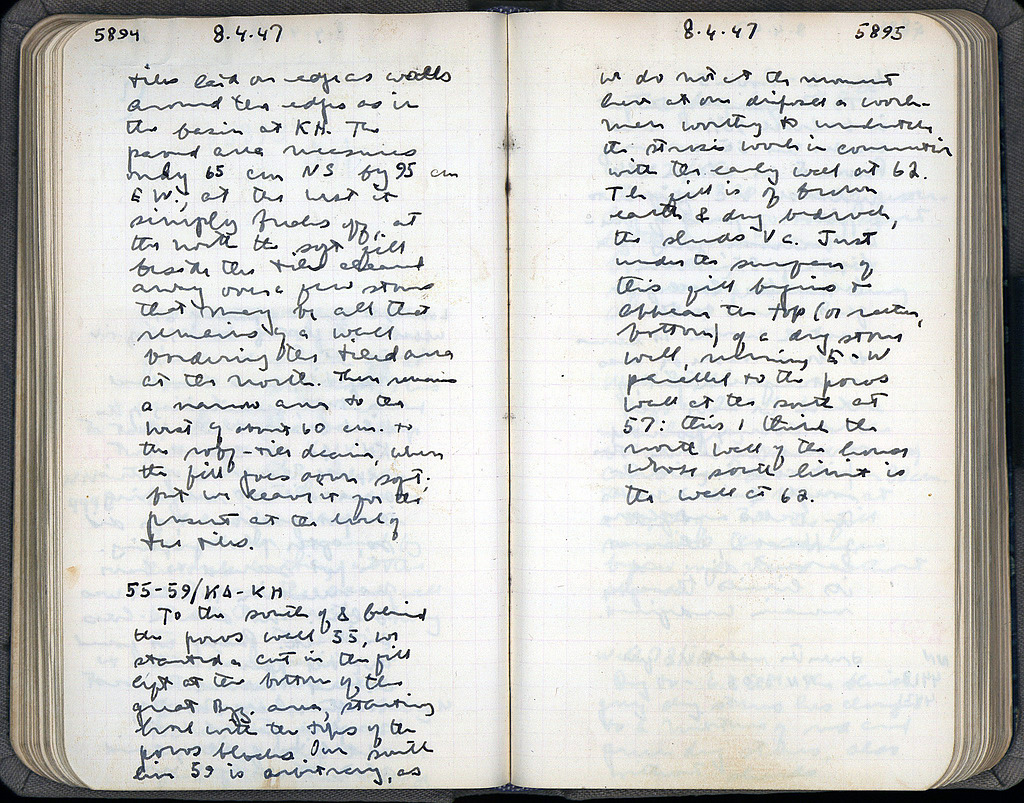 5894 8.4.47
tiles laid on edge as walls
around the edges as in
the basin at KH. The
paved area measures
only 65 cm NS by 95 cm
E W.; at the west it
simply breaks off, at
the north the soft fill
beside the tiles cleared
away over a few stones
that may be all that
remains of a wall
bordering the tiled area
at the north. There remains
a narrow area to the
west of about 60 cm. to
the roof-tile drain, where
the fill goes down soft.
but we leave it for the
present at the level of
the tiles.
55-59/KA-KH
To the south of & behind
the poros wall 55, we
started a cut in the fill
left at the bottom of the
great Byz. area, starting
level with the tops of the
poros blocks. Our south
line 59 is arbitrary, as
8.4.47 5895
we do not at the moment
have at our disposal a work-
man worthy to undertake
the stroses work in connection
with the early wall at 62.
The fill is of brown
earth & dug bedrock,
the sherds V c. Just
under the surface of
this fill begins to
appear the top (or rather,
bottom) of a dry stone
wall, running E-W
parallel to the poros
wall at the south at
57: this, I think the
north wall of the house
whose south limit is
the wall at 62.